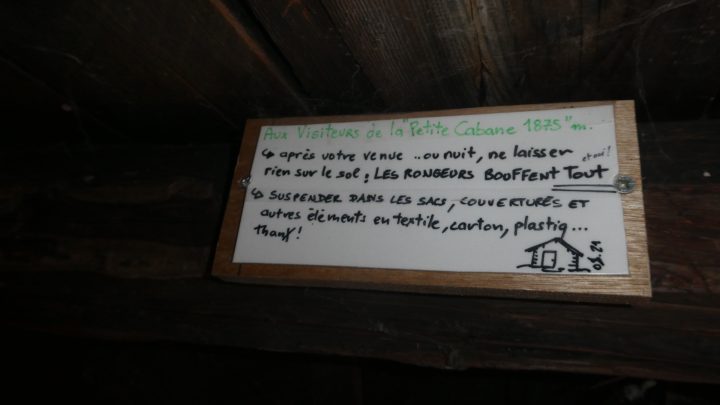 Aux Visiteurs de la "Petite Cabane 1875" m.
↳ après votre venue .. ou nuit, ne laisser et oui!
rien sur le sol : LES RONGEURS BOUFFENT TOUT
↳ SUSPENDER DANS LES SACS, COUVERTURES ET
autres éléments en textile, carton, plastiq...
thanx!
08.21